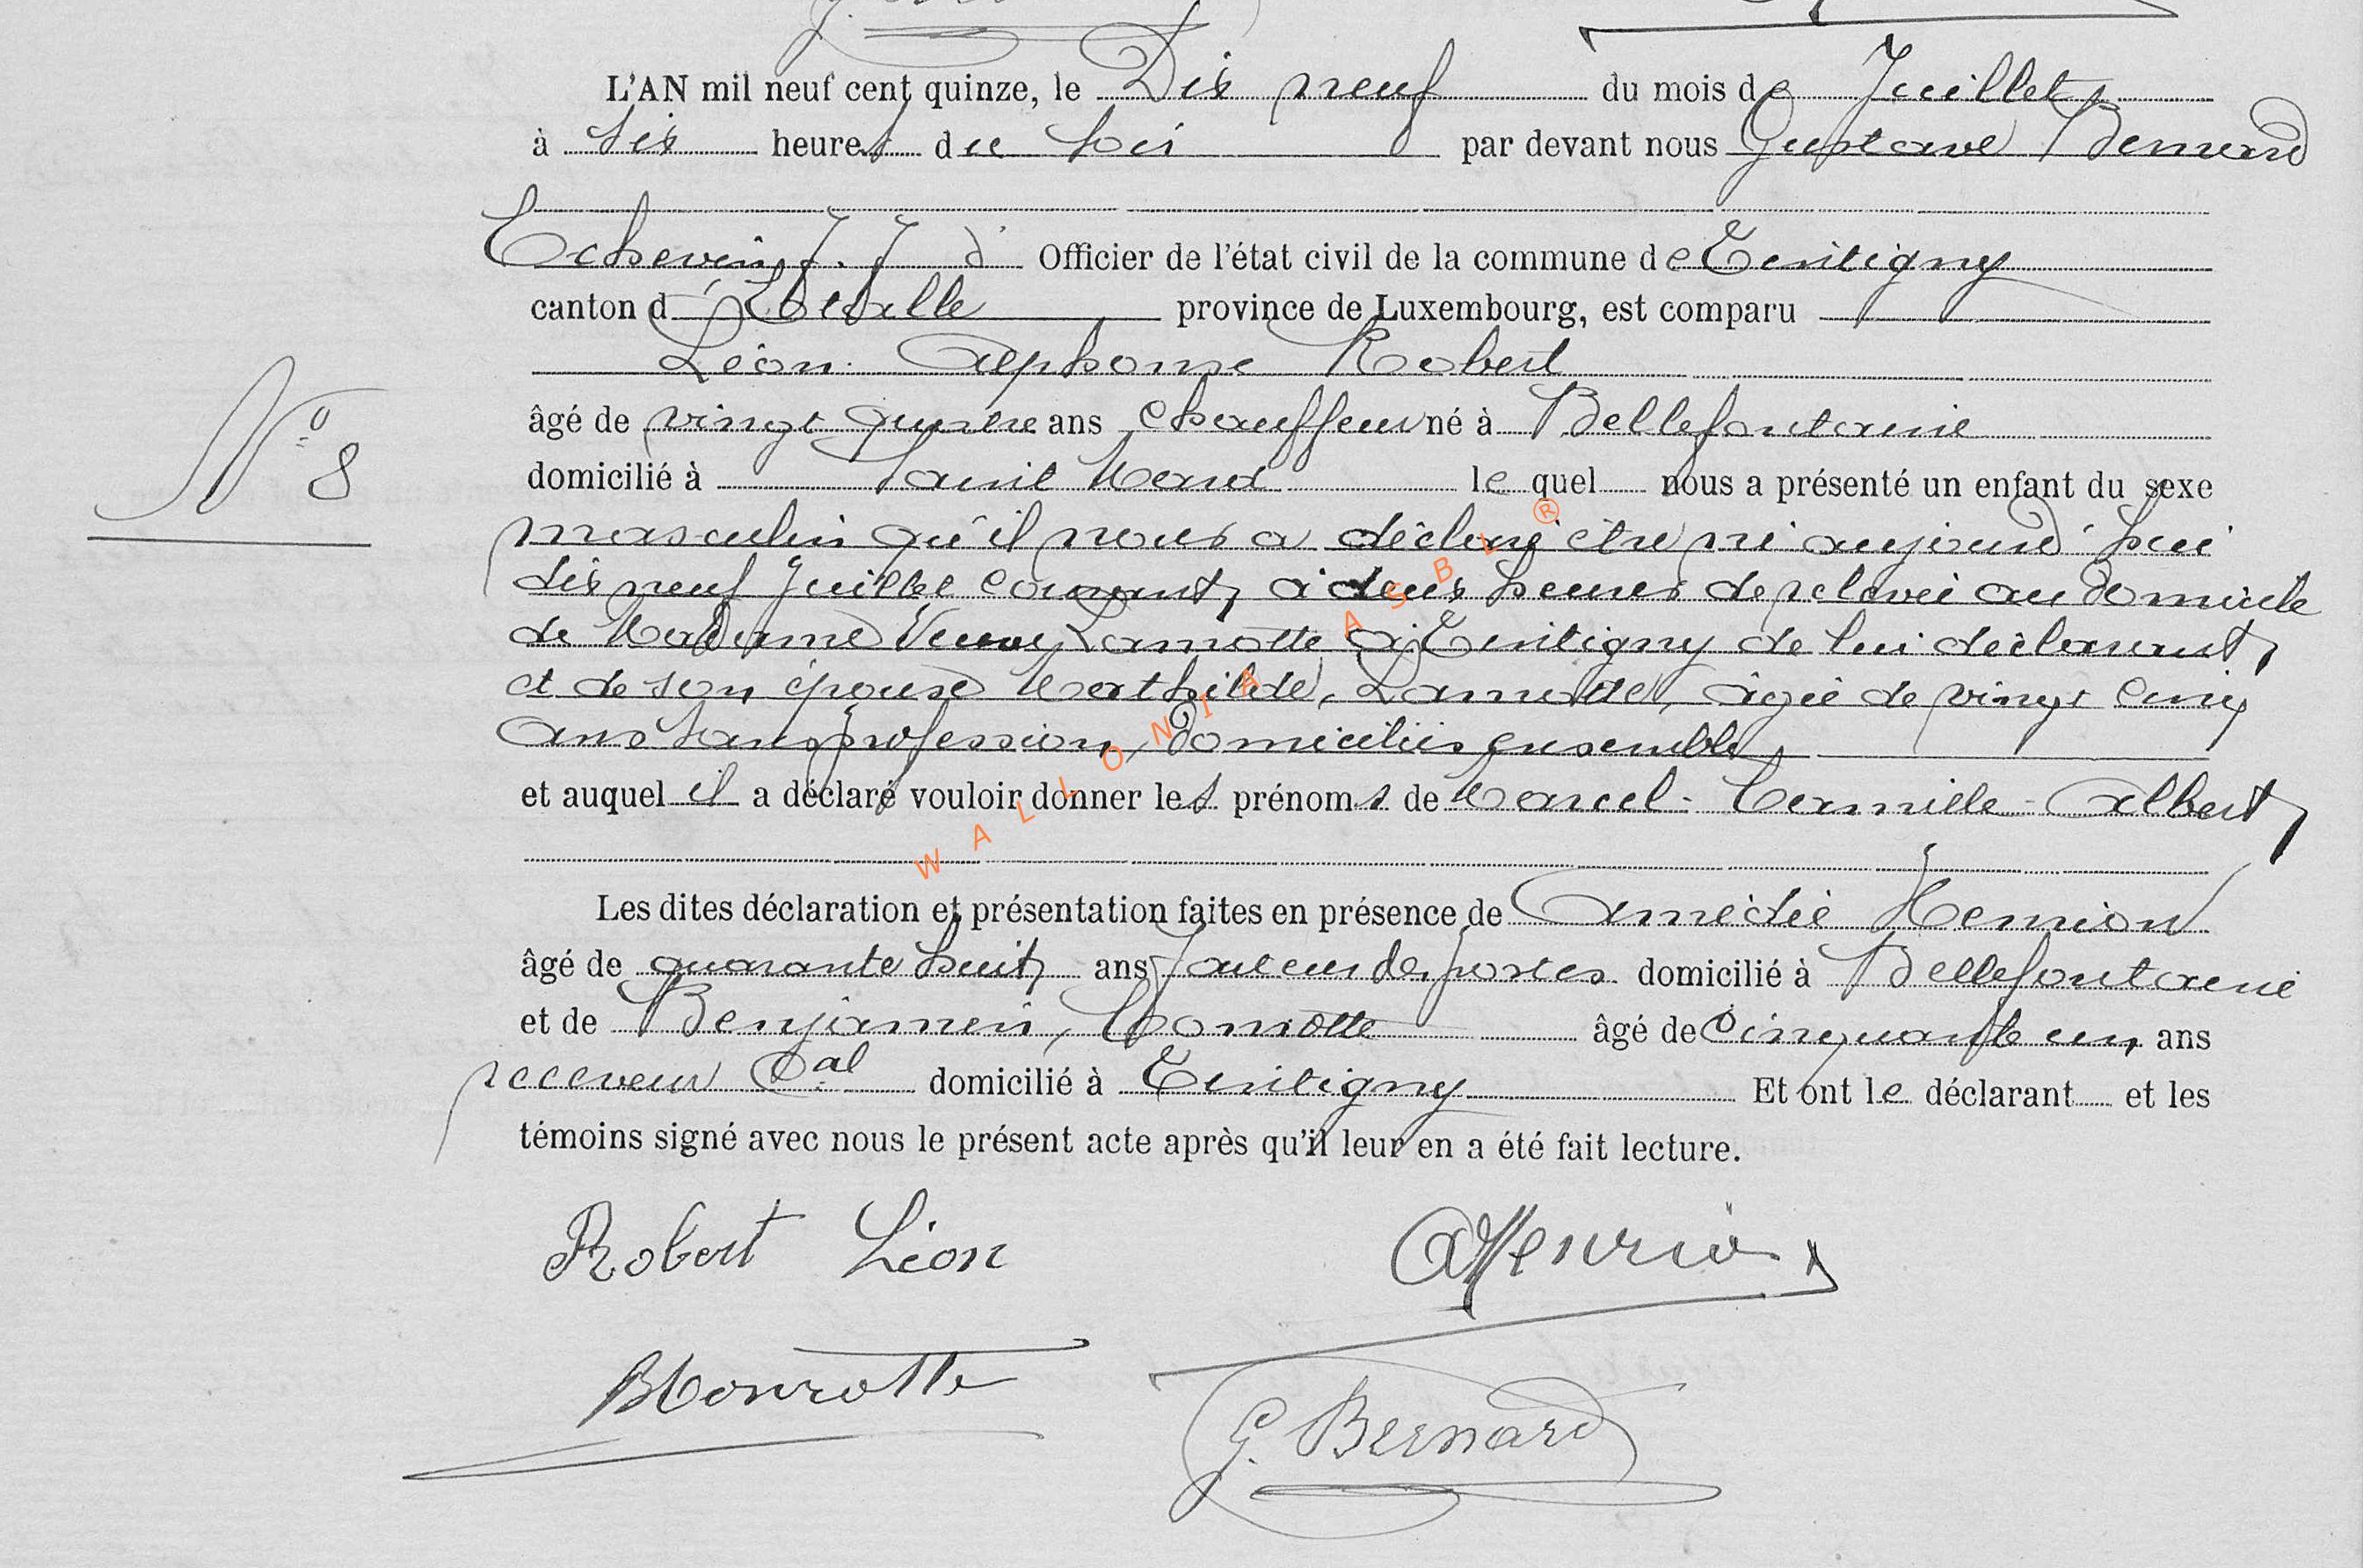 L'AN mil neuf cent quinze, le Dix neuf du mois de Juillet,
à six heures du soir par devant nous Gustave Bernard
Echevin, f. f. d' Officier de l'état civil de la commune de Tintigny
canton d'Etalle province de Luxembourg, est comparu
Léon Alphonse Robert
âgé de vingt quatre ans chauffeur né à Bellefontaine
domicilié à Saint Mard le quel nous a présenté un enfant du sexe
N° 8
masculin qu'il nous a déclaré être né aujourd'hui
dix neuf Juillet courant, à deux heures de relevée au domicile
de Madame Veuve Lamotte à Tintigny de lui déclarant,
et de son épouse Mathilde, Lamotte, âgée de vingt cinq
ans sans profession, domiciliés ensemble
et auquel il a déclaré vouloir donner les prénoms de Marcel - Camille - Albert,
Les dites déclaration et présentation faites en présence de Amédée Henrion
âgé de quarante huit, ans, facteur des postes domicilié à Bellefontaine
et de Benjamin, Monrotte âgé de Cinquante un, ans
receveur Cal domicilié à Tintigny Et ont le déclarant et les
témoins signé avec nous le présent acte après qu'il leur en a été fait lecture.
Robert Léon AHenrion
BMonrotte
G. Bernard
WALLONIA ASBL ®